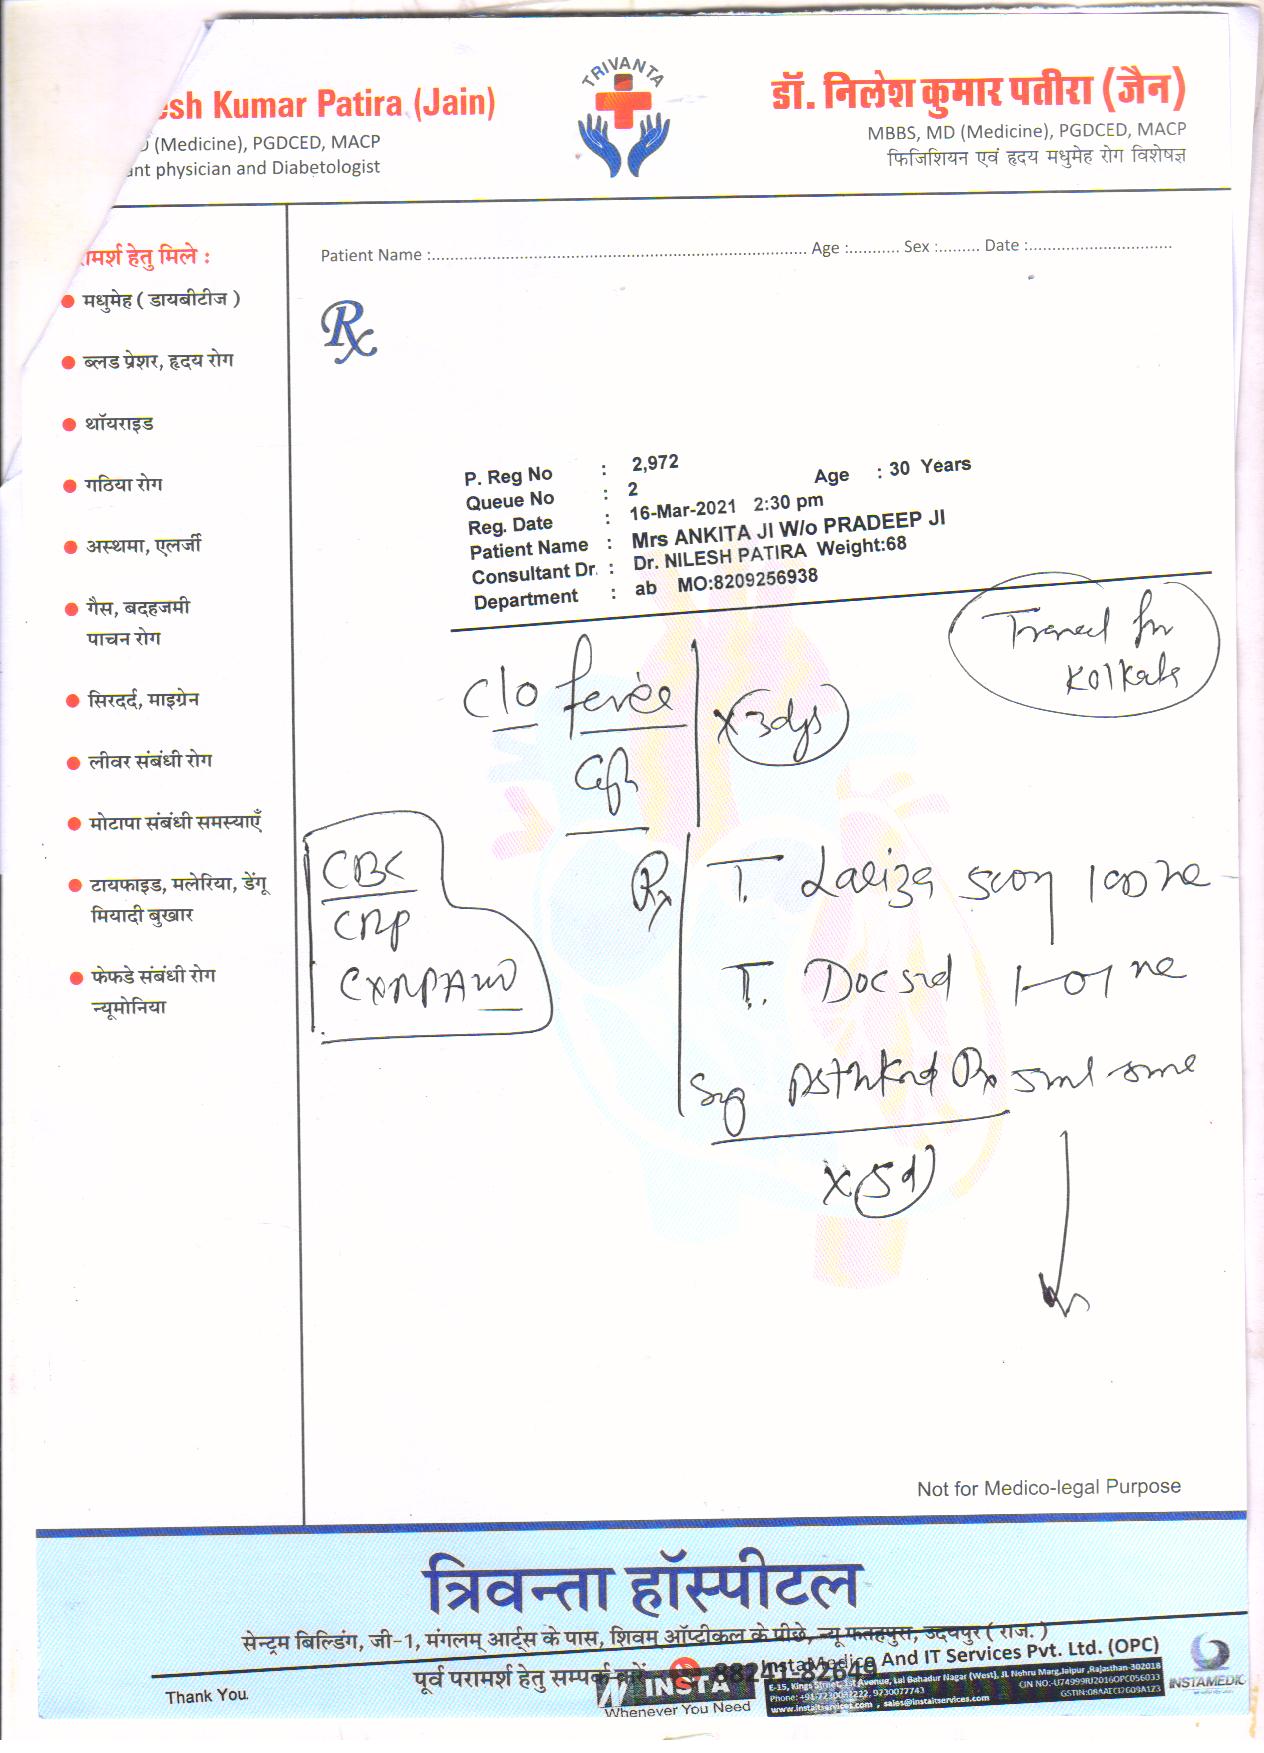 esh Kumar Patira (Jain)
(Medicine), PGDCED, MACP
ant physician and Diabetologist
TRIVANTA
डॉ. निलेश कुमार पतीरा (जैन)
MBBS, MD (Medicine), PGDCED, MACP
फिजिशियन एवं हृदय मधुमेह रोग विशेषज्ञ
ामर्श हेतु मिले :
मधुमेह ( डायबीटीज )
ब्लड प्रेशर, हृदय रोग
थॉयराइड
गठिया रोग
अस्थमा, एलर्जी
गैस, बदहजमी
पाचन रोग
सिरदर्द, माइग्रेन
लीवर संबंधी रोग
मोटापा संबंधी समस्याएँ
टायफाइड, मलेरिया, डेंगू
मियादी बुखार
फेफडे संबंधी रोग
न्यूमोनिया
Patient Name :.......... Age :.......... Sex :......... Date :..........
Rx
P. Reg No : 2,972 Age : 30 Years
Queue No : 2
Reg. Date : 16-Mar-2021 2:30 pm
Patient Name : Mrs ANKITA JI W/o PRADEEP JI
Consultant Dr. : Dr. NILESH PATIRA Weight:68
Department : ab MO:8209256938
for
Kolkata
C/O fever
x 3dys
CBC
CRP
Rx
T. 100
T.
Syp 5ml
x 5d
Not for Medico-legal Purpose
त्रिवन्ता हॉस्पीटल
सेन्ट्रम बिल्डिंग, जी-1, मंगलम् आर्ट्स के पास, शिवम ऑप्टीकल के पीछे, न्यू फतहपुरा, उदयपुर ( राज. )
पूर्व परामर्श हेतु सम्पर्क करें 88241-82649
Thank You.
INSTA
Whenever You Need
InstaMedico And IT Services Pvt. Ltd. (OPC)
E-15, Kings Street, 1st Avenue, Lal Bahadur Nagar (West), JL Nehru Marg, Jaipur, Rajasthan-302018
www.instaitservices.com , sales@instaitservices.com
INSTAMEDIC